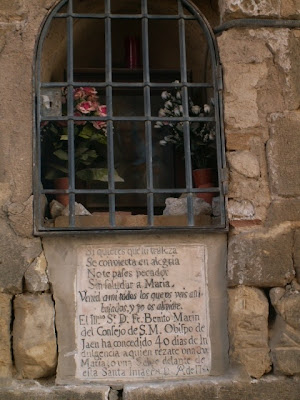 Si quieres que tu tristeza
Se convierta en alegria
No te pases pecador
Sin saludar a Maria,
Venid a mi todos los que os veis atri-
bulados, y yo os aliviaré.
El Illmo. S.r D. Fr. Benito Marin
del Consejo de S.M. Obispo de
Jaen ha concedido 40 dias de In
dulgencia a quien rezare una
Maria o una Salve delante de
esta Santa Imagen